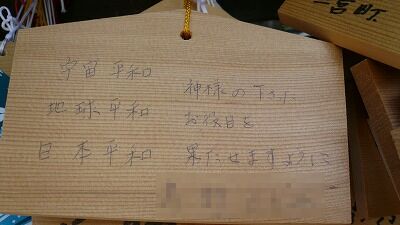 宇留平和
地球平和
日本平和
神様の下さった
お役目を
果たせますように
宮町